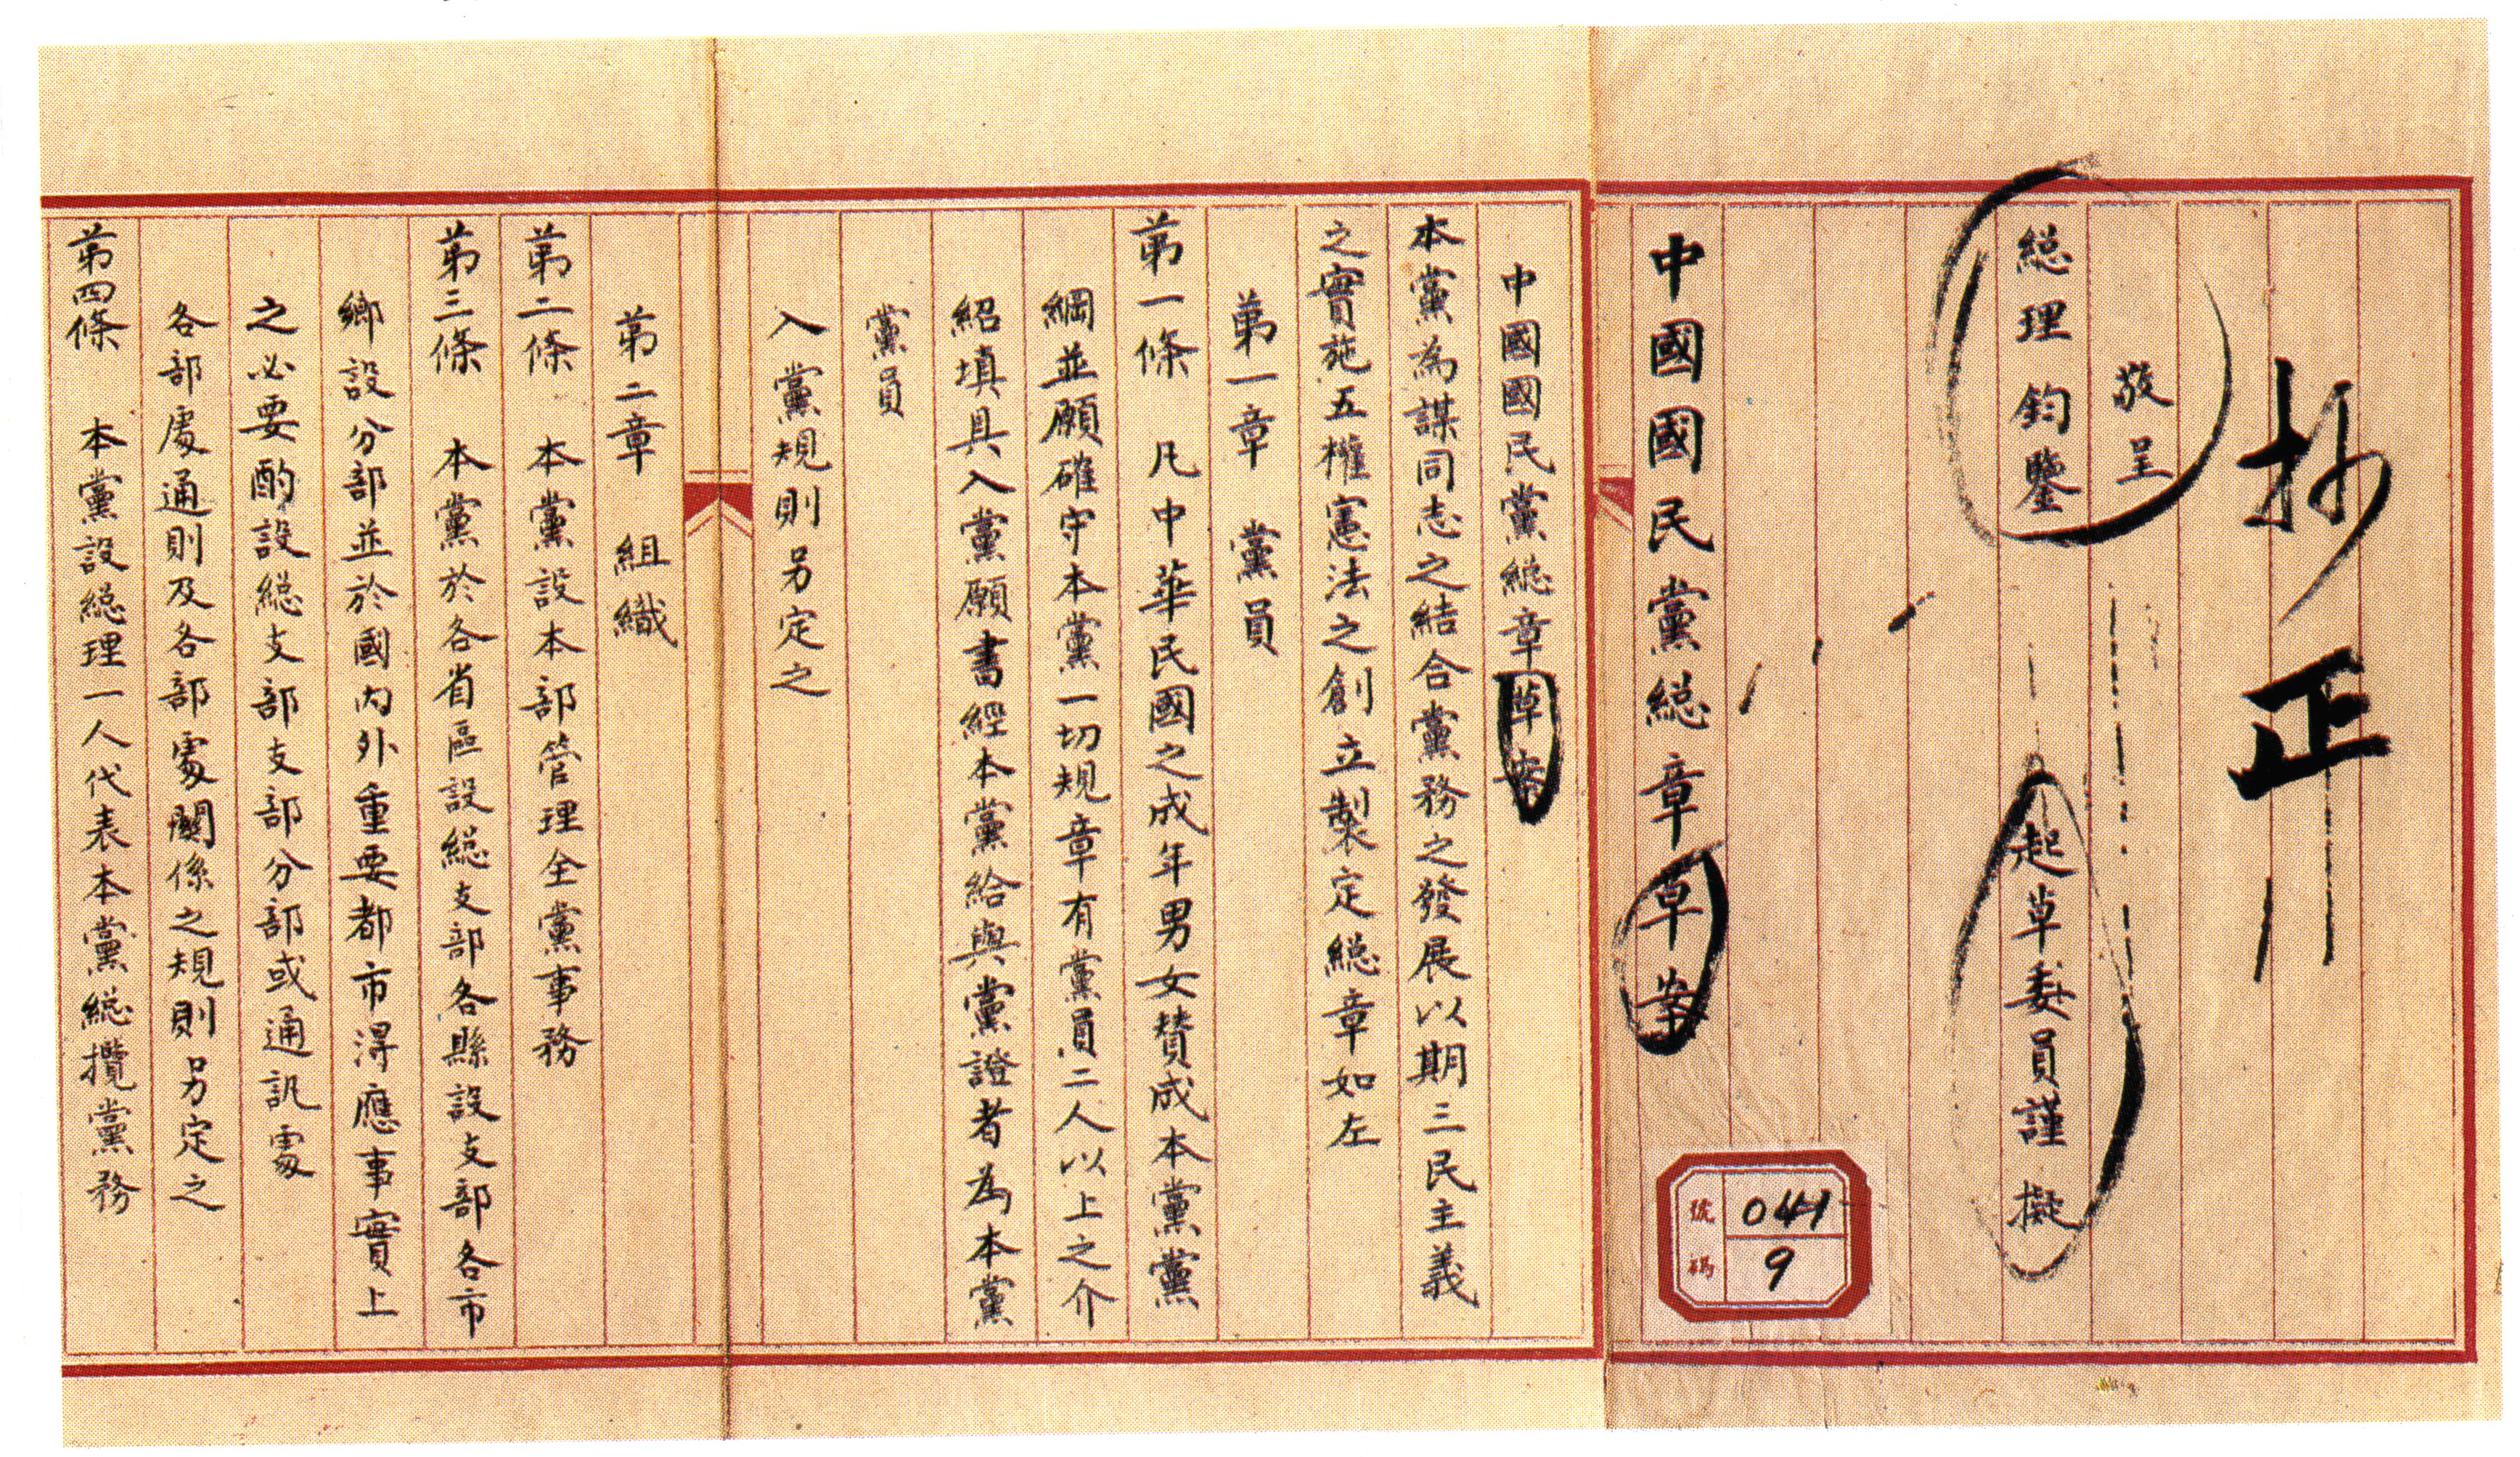 抄正
敬呈
総理鈞鑒
起草委員謹擬
中國國民黨総章草案
號碼
041
9
中國國民黨総章草案
本黨為謀同志之結合黨務之發展以期三民主義
之實施五權憲法之創立製定総章如左
第一章 黨員
第一條 凡中華民國之成年男女賛成本黨黨
綱並願確守本黨一切規章有黨員二人以上之介
紹填具入黨願書經本黨給與黨證者為本黨
黨員
入黨規則另定之
第二章 組織
第二條 本黨設本部管理全黨事務
第三條 本黨於各省區設総支部各縣設支部各市
鄉設分部並於國內外重要都市得應事實上
之必要酌設総支部支部分部或通訊處
各部處通則及各部處關係之規則另定之
第四條 本黨設総理一人代表本黨総攬黨務